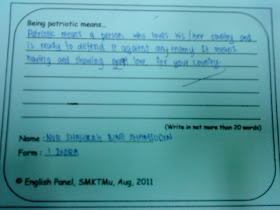 Being patriotic means...
Patriotic means a person who loves his / her country and
is ready to defend it against any enemy. It means
having and showing great love for your country.
(Write in not more than 20 words)
Name : NUR SHAHIRAH BINTI SHAMSUDIN
Form : 1 INDRA
© English Panel, SMKTMu, Aug, 2011